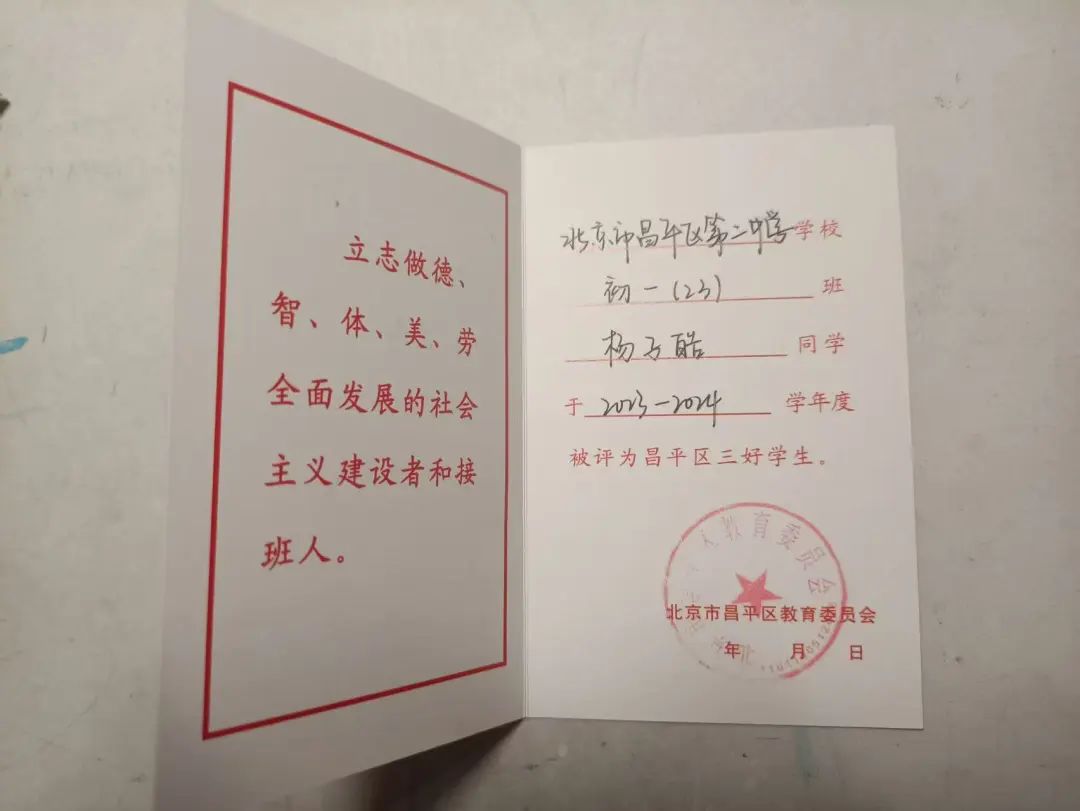 立志做德、
智、体、美、劳
全面发展的社会
主义建设者和接
班人。
北京市昌平区第二中学学校
初一(23) 班
杨子酷 同学
于 2023-2024 学年度
被评为昌平区三好学生。
教育委员会
北京市昌平区教育委员会
年 月 日